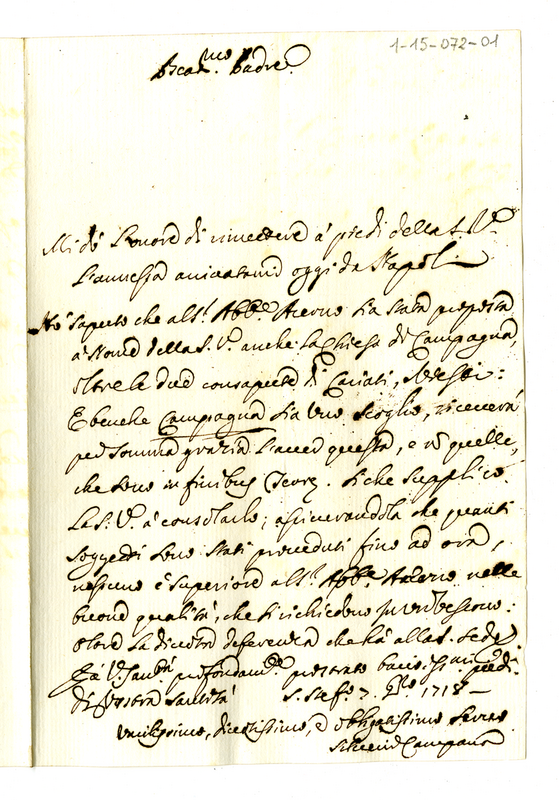 1-15-072-01
Beat.mo Padre
Mi dò l'onore di rimettere a' piedi della S. V.
l'annessa oggi da Napoli.
Hò saputo che all' Abb.e Acerno sia stata proposta
à nome della S. V. anche la Chiesa di Campagna,
oltre le due consapute di Cariati,
E benche Campagna sia uno scoglio, riceverà
per somma grazia l'aver questa, e nò quelle,
che sono in finibus Terrę. Siche supplico
La S. V. à consolarlo; che quanti
soggetti sono stati proveduti fino ad ora,
nessuno è superiore all' Abb.e Acerno nelle
buone qualità, che si richiedono in un Vescovo:
oltre la deferenza che hà alla S. Sede.
E à V. profondam.e prostrato bacio i piedi.
Di Vostra Santità S. Stef.o 7. 1718
Umilissimo, e obligatissimo Servo
Campana